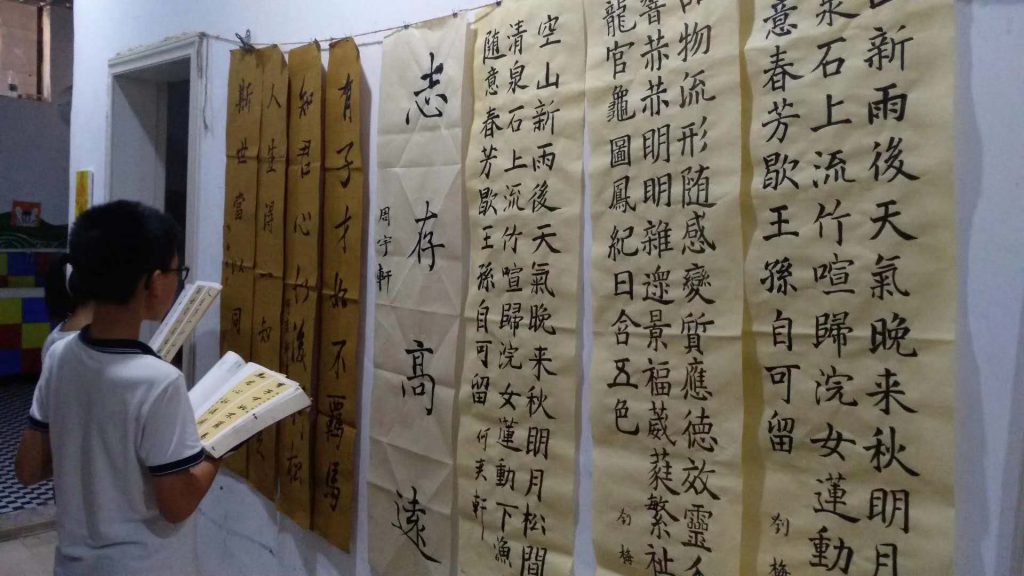 新雨後天氣晚来秋明月
泉石上流竹喧歸浣女蓮動
意春芳歇王孫自可留
劉梅
物流形随感變質應德效靈
明明雜遝景福葳蕤繁祉
龍官龜圖鳳紀日含五色
劉梅
空山新雨後天氣晚来秋明月松間
清泉石上流竹喧歸浣女蓮動下漁
随意春芳歇王孫自可留
志存高遠
周宇軒
有子才如不羈馬
知君心行後松
人生得知
斯世當以同